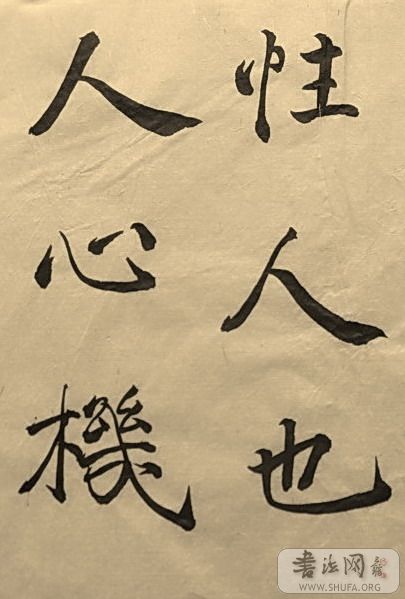 性人也
人心機
書法网
WWW.SHUFA.ORG